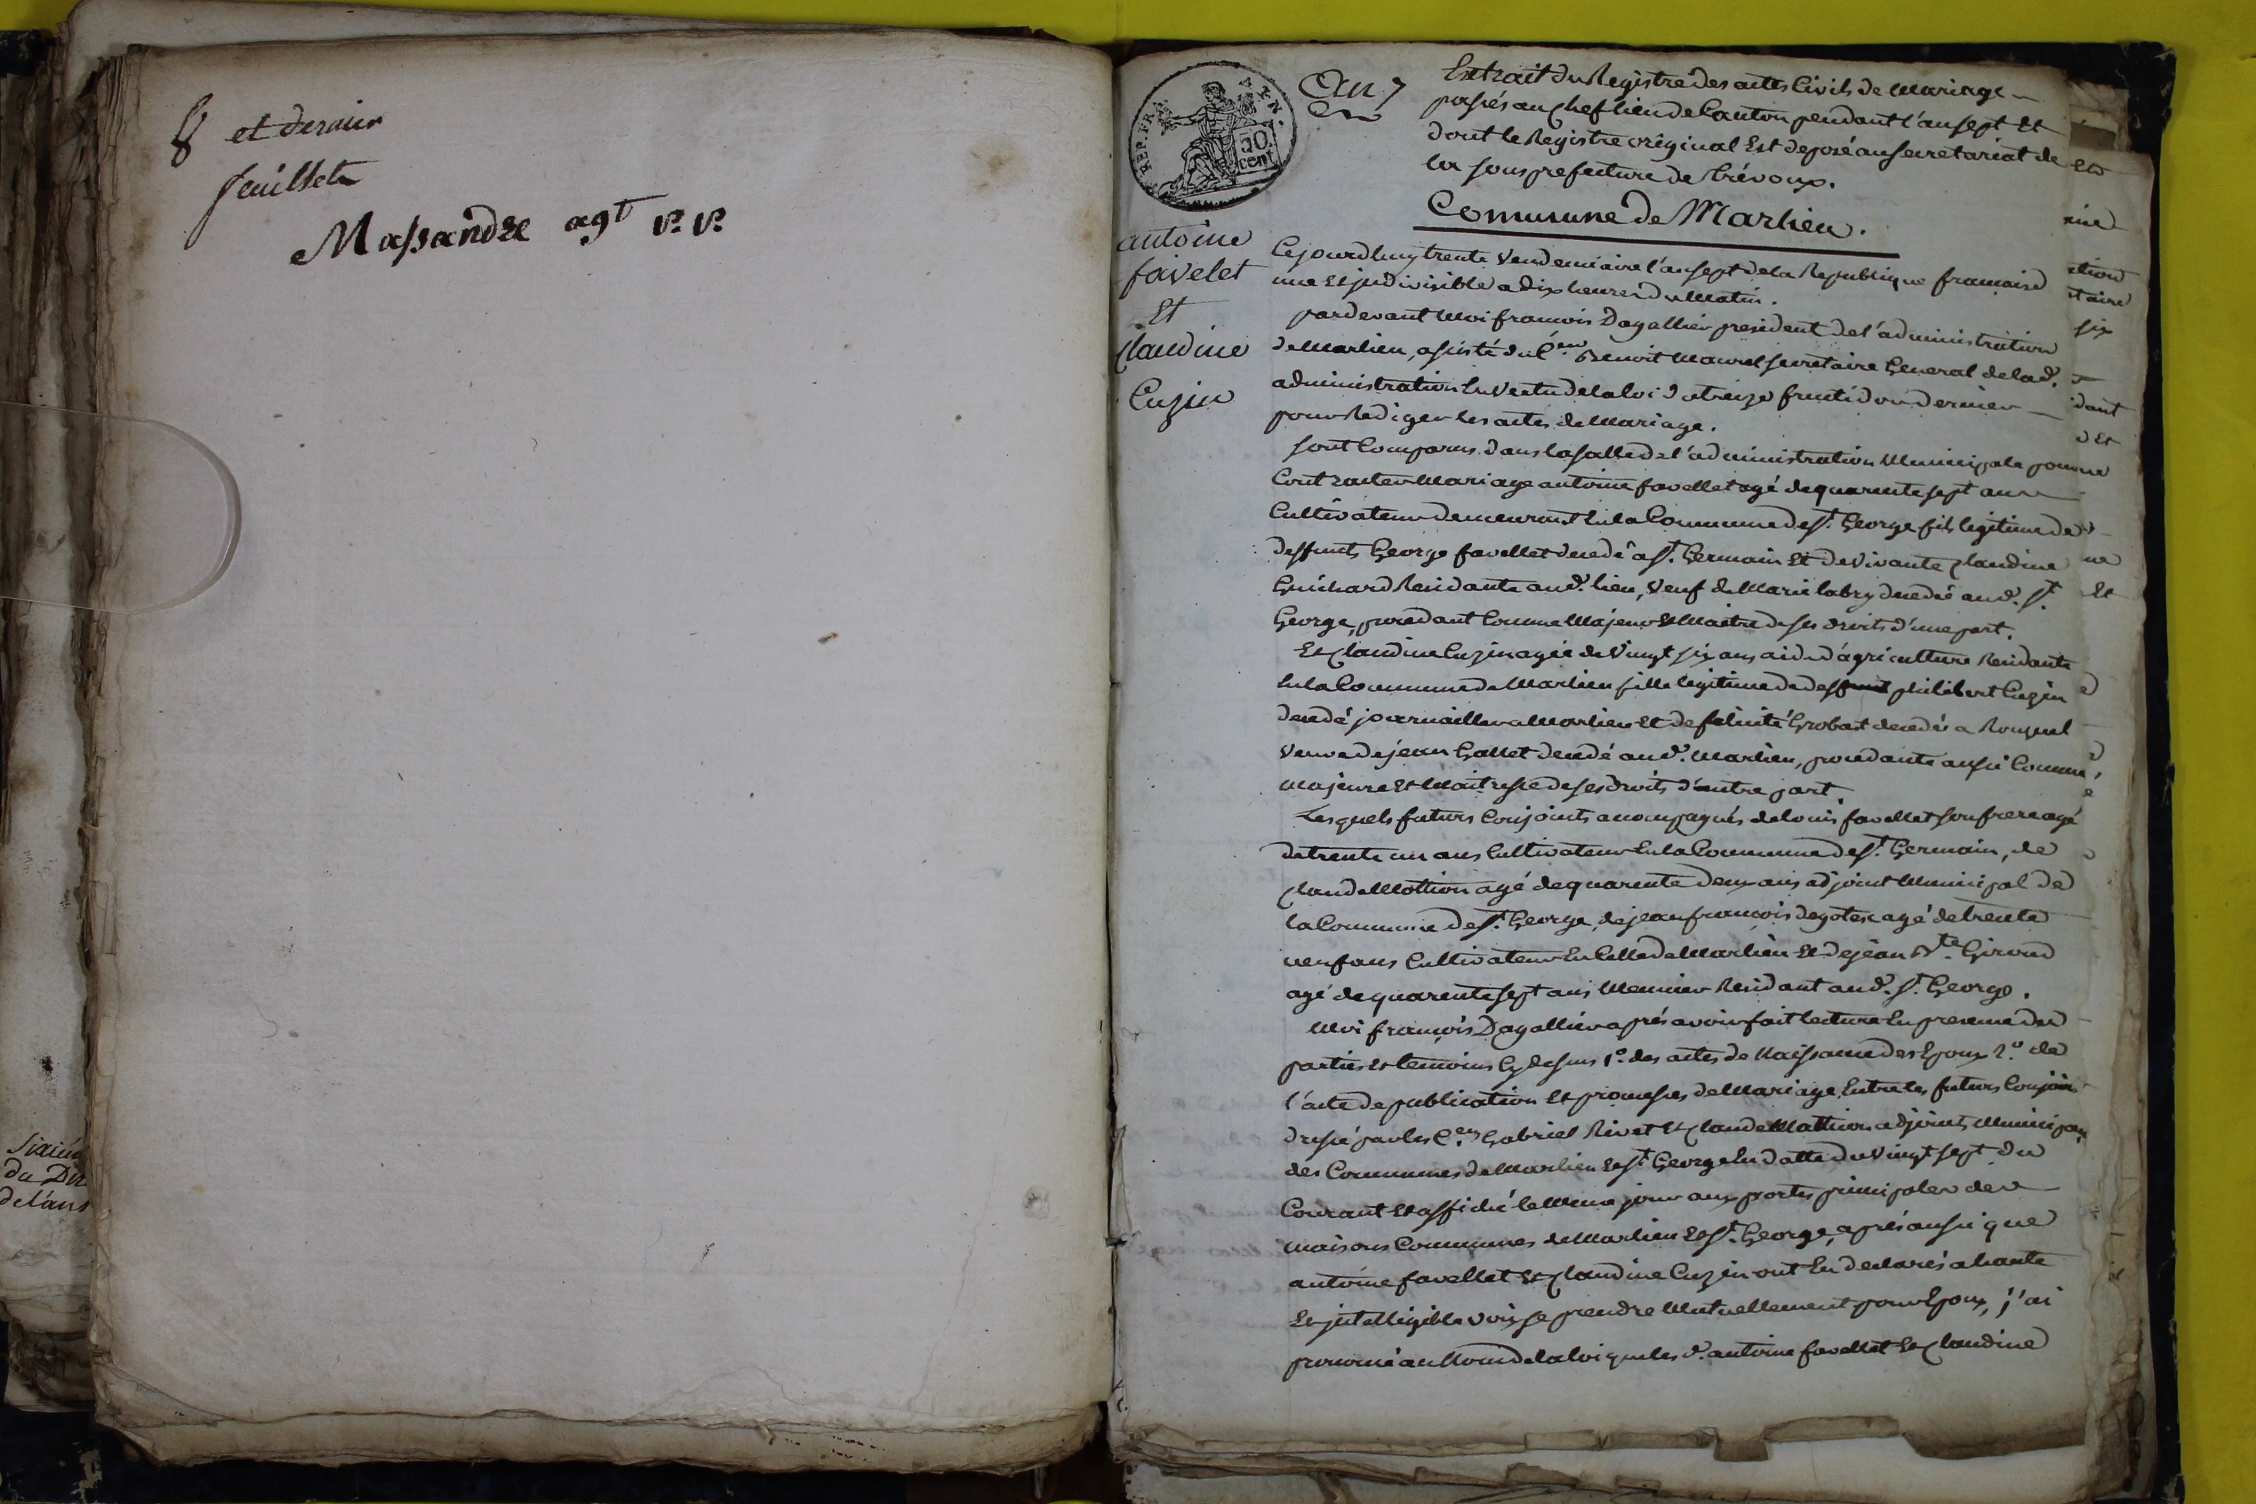 8 et dernier
feuillet
Massandre agt
Sixiem
du
de l'an
REP. FR.
50.
cent
An 7
Extrait du Registre des actes Civils de Mariage
passés au Chef lieu de Canton pendant l'an sept Et
dont le Registre original Est deposé au secretariat de
la sous prefecture de trévoux.
Commune de Marlieu.
antoine
favelet
Et
Claudine
Cuzin
Cejourdhuy trente Vendemiaire l'an sept de la Republique francaise
une et indivisible a dix heures du Matin.
pardevant Moi francois Dagallier president de l'administration
de Marlieu, assisté du C.en Benoit Maurel secretaire General de lad.
administration En Vertu de la loi du treize fructidor dernier
pour Rediger les actes de Mariage.
sont Comparus dans la salle de l'administration Municipale pour
Contracter Mariage antoine favellet agé de quarente sept ans
Cultivateur demeurant En la Commune de St. George fils legitime de
deffunts George favellet decedé a St. Germain Et de Vivante Claudine
Guichard Residante aud. lieu, Veuf de Marie labry decedée aud. St.
George, procedant Comme Majeur et Maitre de ses droits d'une part.
Et Claudine Cuzin agée de Vingt six ans aide d'agriculture Residante
En la Commune de Marlieu fille legitime de deffunt philibert Cuzin
decedé journaillier a Marlieu Et de felicité Grobart decedée a
Veuve de jean Gallet decedé aud. Marlieu, procedante aussi Comme
Majeure Et Maitresse de ses droits d'autre part.
Lesquels futurs Conjoints accompagnés de louis favellet son frere agé
de trente un ans Cultivateur En la Commune de St. Germain, de
Claude Mattion agé de quarente deux ans adjoint Municipal de
la Commune de St. George, de jean francois agé de trente
neuf ans Cultivateur En Celle de Marlieu Et de jean Bte. Giroud
agé de quarente sept ans Meunier Residant aud. St. George.
Moi francois Dagallier aprés avoir fait lecture En presence des
parties et temoins Cy dessus 1.º des actes de Naissance des Epoux 2.º de
l'acte de publication Et promesses de Mariage Entre les futurs Conjoin
dressé par les C.ens Gabriel Rivet Et Claude Mattion adjoints Municipau
des Communes de Marlieu Et St. George En datte du Vingt sept du
Courant Et affiché le Meme jour aux portes principales des
maisons Communes de Marlieu Et St. George, aprés aussi que
antoine favellet Et Claudine Cuzin ont Eu declarés a haute
Et jntelligible voix se prendre Mutuellement pour Epoux, j'ai
prononcé au Nom de la loi que les d. antoine favellet Et Claudine